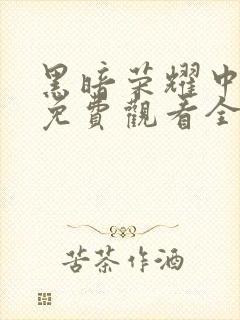 黑暗荣耀中
免費觀看全
苦茶作酒